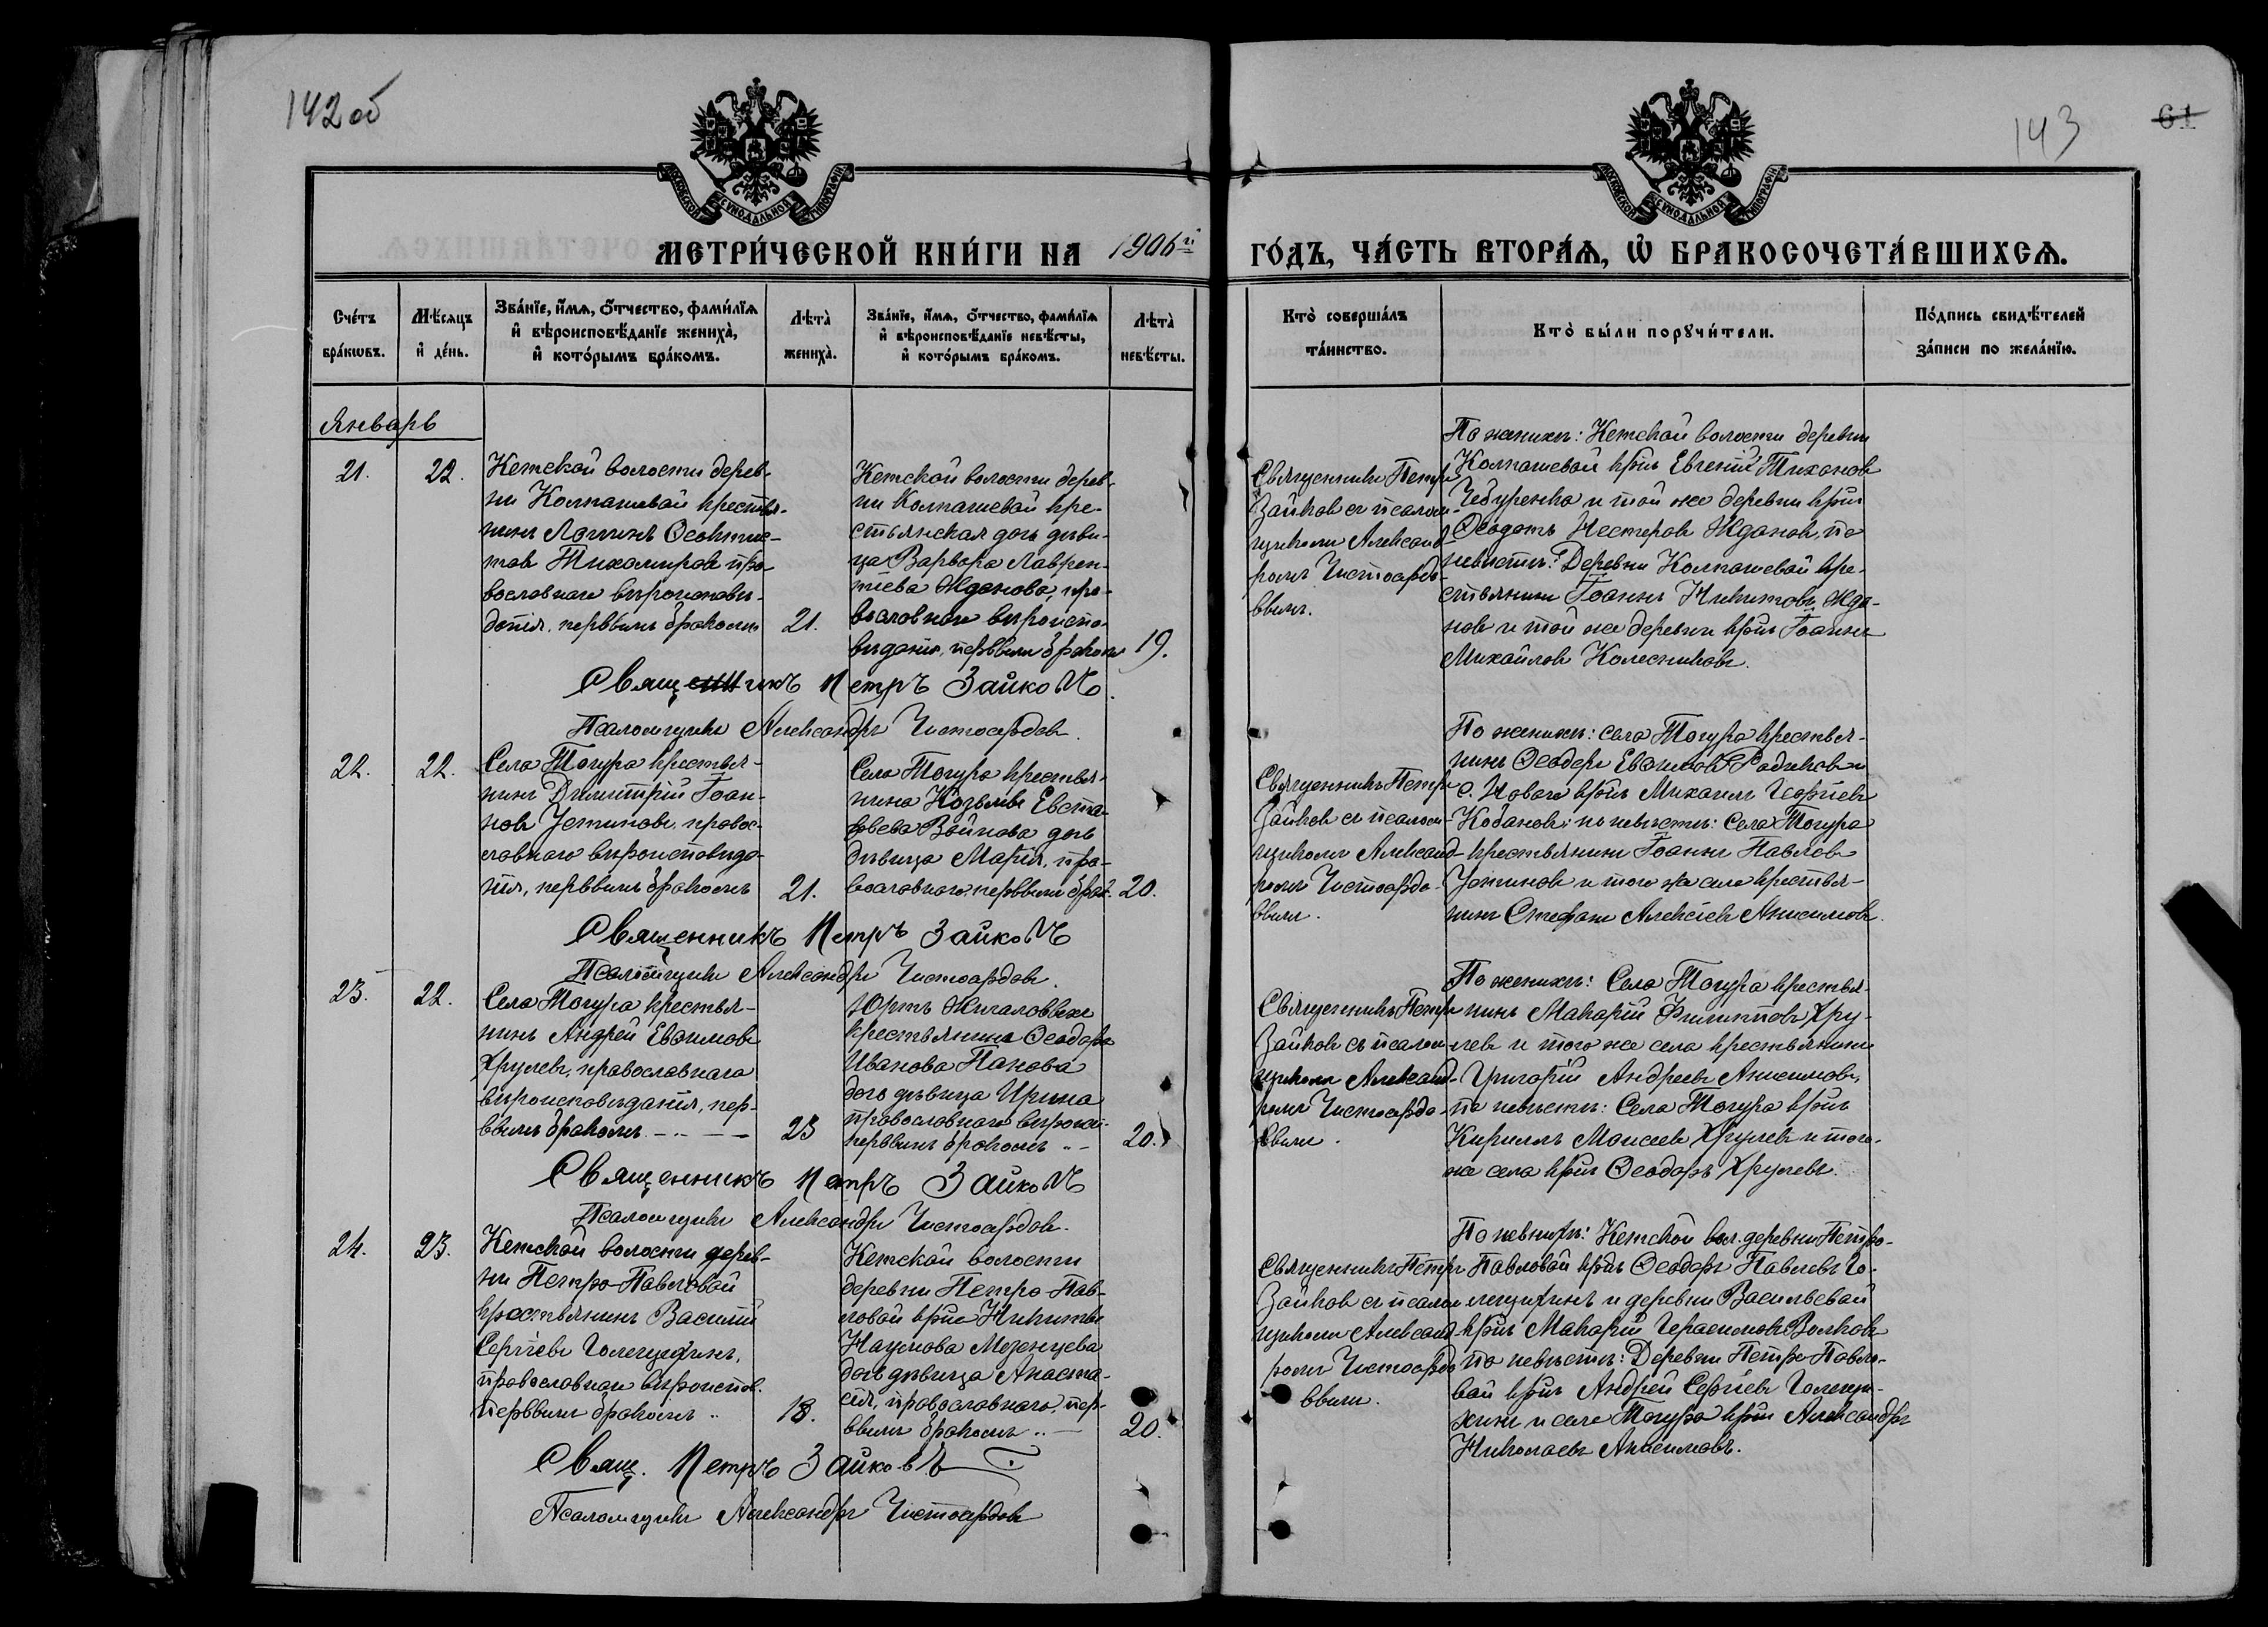 142 об
143
61
МОСКОВСКОЙ СѴНОДАЛЬНОЙ ТИПОГРАФІИ
МОСКОВСКОЙ СѴНОДАЛЬНОЙ ТИПОГРАФІИ
МЕТРИ́ЧЕСКОЙ КНИ́ГИ НА 1906й
ГО́ДЪ, ЧА́СТЬ ВТОРА́Ѧ, Ѽ БРАКОСОЧЕТА́ВШИХСѦ.
Сче́тъ бра́кѡвъ.
Мѣ́сяцъ и҆ де́нь.
Зва́нїе, и҆́мѧ, ѻ҆́тчество, фами́лїѧ
и҆ вѣроисповѣ́данїе жениха̀,
и҆ кото́рымъ бра́комъ.
Лѣта̀ жениха̀.
Зва́нїе, и҆́мѧ, ѻ҆́тчество, фами́лїѧ
и҆ вѣроисповѣ́данїе невѣ́сты,
и҆ кото́рымъ бра́комъ.
Лѣта̀ невѣ́сты.
Кто̀ соверша́лъ
та́инство.
Кто̀ бы́ли порꙋчи́тели.
По́дпись свидѣ́телей
за́писи по жела́нїю.
Январь
21.
22.
Кетской волости дерев-
ни Колпашевой крестья-
нинъ Логгинъ Ѳеоктис-
товъ Тихомировъ пра-
вославнаго вѣроисповѣ-
данія, первымъ бракомъ
21.
Кетской волости дерев-
ни Колпашевой кре-
стьянская дочь дѣви-
ца Варвара Лаврен-
тіева Жданова, пра-
вославнаго вѣроиспо-
вѣданія, первымъ бракомъ
19.
Священникъ Петръ
Зайковъ съ псалом-
щикомъ Александ-
ромъ Чистосердо-
вымъ.
По женихѣ: Кетской волости деревни
Колпашевой кр-нъ Евгеній Тихоновъ
Чебуренко и той же деревни кр-нъ
Ѳеодотъ Нестеровъ Ждановъ, по
невѣстѣ: Деревни Колпашевой кре-
стьянинъ Іоаннъ Никитовъ Жда-
новъ и той же деревни кр-нъ Іоаннъ
Михайловъ Колесниковъ.
Священникъ Петръ Зайковъ.
Псаломщикъ Александръ Чистосердовъ.
22.
22.
Села Тогура крестья-
нинъ Димитрій Іоан-
новъ Устиновъ, правос-
лавнаго вѣроисповѣда-
нія, первымъ бракомъ
21.
Села Тогура крестья-
нина Козьмы Евста-
фьева Войнова дочь
дѣвица Марія, пра-
вославнаго, первымъ брак.
20.
Священникъ Петръ
Зайковъ съ псалом-
щикомъ Александ-
ромъ Чистосердо-
вымъ.
По женихѣ: села Тогура крестья-
нинъ Ѳеодоръ Евѳимовъ Родиковъ и
с. Новаго кр-нъ Михаилъ Георгіевъ
Кобановъ; по невѣстѣ: Села Тогура
крестьянинъ Іоаннъ Павловъ
Устиновъ и того же села крестья-
нинъ Стефанъ Алексіевъ Анисимовъ.
Священникъ Петръ Зайковъ
Псаломщикъ Александръ Чистосердовъ.
23.
22.
Села Тогура крестья-
нинъ Андрей Евѳимовъ
Хрулевъ, православнаго
вѣроисповѣданія, пер-
вымъ бракомъ
23
Юртъ Жигаловыхъ
крестьянина Ѳеодора
Иванова Панова
дочь дѣвица Ирина
православнаго вѣроисп.
первымъ бракомъ
20.
Священникъ Петръ
Зайковъ съ псалом-
щикомъ Александ-
ромъ Чистосердо-
вымъ.
По женихѣ: Села Тогура крестья-
нинъ Макарій Филипповъ Хру-
левъ и того же села крестьянинъ
Григорій Андреевъ Анисимовъ,
по невѣстѣ: Села Тогура кр-нъ
Кириллъ Моисеевъ Хрулевъ и того
же села кр-нъ Ѳеодоръ Хрулевъ.
Священникъ Петръ Зайковъ
Псаломщикъ Александръ Чистосердовъ.
24.
23.
Кетской волости дерев-
ни Петро-Павловой
крестьянинъ Василій
Сергіевъ Голещихинъ,
православнаго вѣроиспов.
первымъ бракомъ
18.
Кетской волости
деревни Петро-Пав-
ловой кр-на Никиты
Наумова Мезенцева
дочь дѣвица Анаста-
сія, православнаго, пер-
вымъ бракомъ
20.
Священникъ Петръ
Зайковъ съ псалом
щикомъ Александ-
ромъ Чистосердо
вымъ.
По женихѣ: Кетской вол. деревни Петро-
Павловой кр-нъ Ѳеодоръ Павловъ Го-
лещихинъ и деревни Васильевой
кр-нъ Макарій Герасимовъ Волковъ
по невѣстѣ: Деревни Петро-Павло-
вой кр-нъ Андрей Сергіевъ Голещи-
хинъ и села Тогура кр-нъ Александръ
Николаевъ Анисимовъ.
Свящ. Петръ Зайковъ
Псаломщикъ Александръ Чистосердовъ